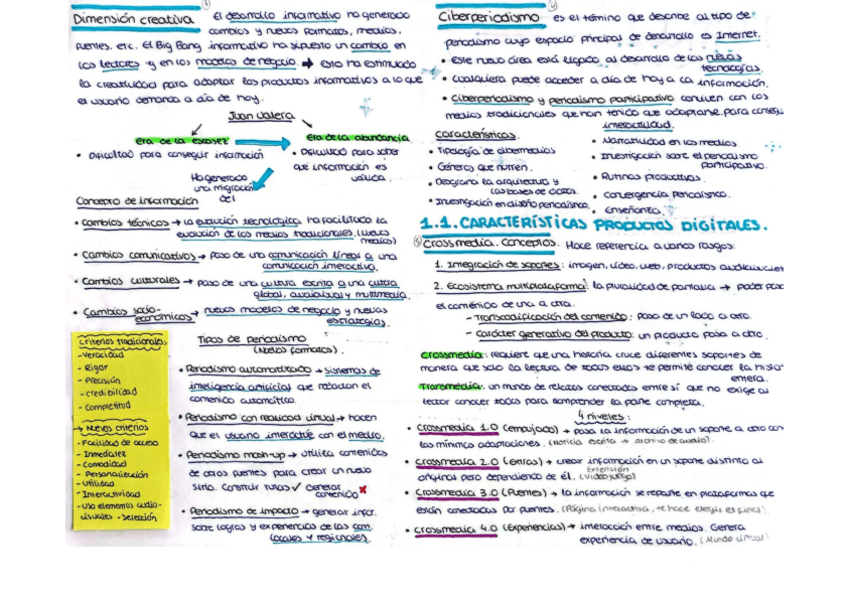 Dimensión creativa El desarrollo informativo ha generado
cambios y nuevos formatos, medios,
fuentes, etc. El Big Bang informativo ha supuesto un cambio en
los lectores y en los modelos de negocio → esto ha estimulado
la creatividad para adaptar los productos informativos a lo que
el usuario demanda a día de hoy.
Juan Valera
Era de la escasez
Era de la abundancia
• Dificultad para conseguir información
• Dificultad para saber
que información es
válida.
Ha generado
una migración
del
Concepto de información
• Cambios técnicos → la evolución tecnológica ha facilitado la
evolución de los medios tradicionales. (nuevos
medios)
• Cambios comunicativos → paso de una comunicación lineal a una
comunicación interactiva.
• Cambios culturales → paso de una cultura escrita a una cultura
global, audiovisual y multimedia.
• Cambios socio-
económicos → nuevos modelos de negocio y nuevas
estrategias.
Criterios tradicionales
- Veracidad
- Rigor
- Precisión
- Credibilidad
- Completitud
→ Nuevos criterios
- Facilidad de acceso
- Inmediatez
- Comodidad
- Personalización
- Utilidad
- Interactividad
- Uso elementos audio-
visuales - Selección
Tipos de periodismo
(Nuevos formatos).
• Periodismo automatizado → sistemas de
inteligencia artificial que redactan el
contenido automático.
• Periodismo con realidad virtual → hacen
que el usuario interactúe con el medio.
• Periodismo mash-up → utiliza contenidos
de otras fuentes para crear un nuevo
sitio. Construir rutas ✓ Generar
contenido ✗
• Periodismo de impacto → generar infor.
sobre logros y experiencias de las com.
locales y regionales.
Ciberperiodismo es el término que describe al tipo de
periodismo cuyo espacio principal de desarrollo es Internet.
• Este nuevo área está ligado al desarrollo de las nuevas
tecnologías.
• Cualquiera puede acceder a día de hoy a la información.
• Ciberperiodismo y periodismo participativo conviven con los
medios tradicionales que han tenido que adaptarse para conseguir
interactividad.
Características.
• Tipología de cibermedios
• Géneros que nutren.
• Desgrana la arquitectura y
las bases de datos.
• Investigación en diseño periodístico.
• Narratividad en los medios
• Investigación sobre el periodismo
participativo.
• Rutinas productivas.
• Convergencia periodística.
• Enseñanza.
1.1. CARACTERÍSTICAS PRODUCTOS DIGITALES.
Crossmedia. Conceptos. Hace referencia a varios rasgos:
1. Integración de soportes: imagen, vídeo, web, productos audiovisuales
2. Ecosistema multiplataforma: la pluralidad de pantalla → poder pasar
el contenido de una a otra.
- Transcodificación del contenido: paso de un lado a otro.
- Carácter generativo del producto: un producto pasa a otro.
Crossmedia: requiere que una historia cruce diferentes soportes de
manera que solo la lectura de todos ellos se permite conocer la historia
entera.
Transmedia: un mundo de relatos conectados entre sí que no exige al
lector conocer todos para comprender la parte completa.
4 niveles:
• Crossmedia 1.0 (Empujado) → pasa la información de un soporte a otro con
las mínimas adaptaciones. (Noticia escrita → archivo de audio).
• Crossmedia 2.0 (Extras) → crear información en un soporte distinto al
original pero dependiendo de él. Extensión (Videojuego)
• Crossmedia 3.0 (Puentes) → la información se reparte en plataformas que
están conectadas por puentes. (Página interactiva, te hace elegir el final)
• Crossmedia 4.0 (Experiencias) → interacción entre medios. Genera
experiencia de usuario. (Mundo virtual)